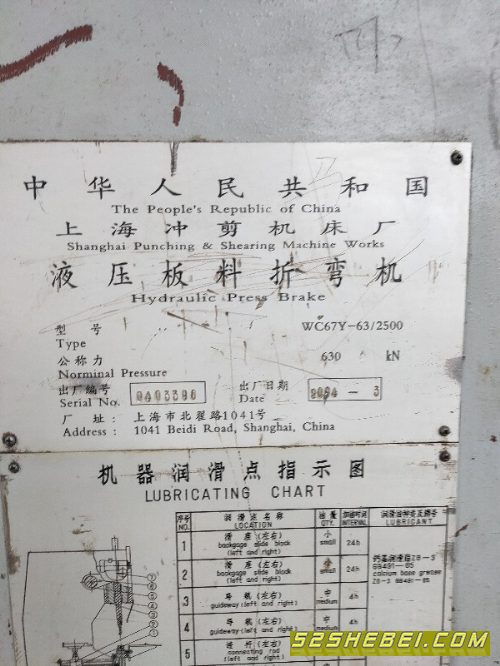 中华人民共和国
The People's Republic of China
上海冲剪机床厂
Shanghai Punching & Shearing Machine Works
液压板料折弯机
Hydraulic Press Brake
型号 WC67Y-63/2500
Type
公称力 630 kN
Norminal Pressure
出厂编号 出厂日期
Serial No. Date
厂址: 上海市北翟路1041号
Address: 1041 Beidi Road, Shanghai, China
机器润滑点指示图
LUBRICATING CHART
序号 润滑点名称 油量 加油时间 润滑油种类及牌号
NO. LOCATION QTY. INTERVAL LUBRICANT
1 滑座(左右) 小 24h
backgage slide block small
(left and right)
2 滑座(左右) 24h
backgage slide block small
(left and right)
钙基润滑脂ZG-3
GB491-65
calcium base grease
ZG-3 GB491-65
3 导轨(左右) 中 4h
guideway (left and right) medium
4 导轨(左右) 中 4h
guideway (left and right) medium
5 连杆(左右)
connecting rod
52SHEBEI.COM